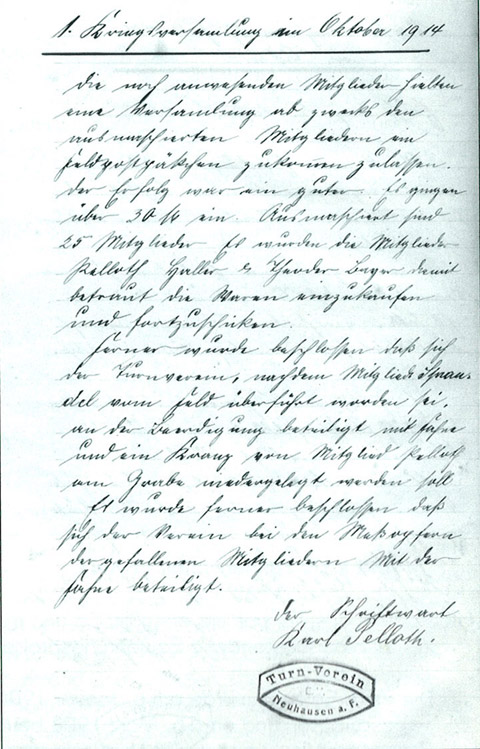 1. Kriegsversamlung im Oktober 1914
Die noch anwesenden Mitglieder hielten
eine Versamlung ab zwecks den
ausmaschierten Mitgliedern ein
Feldpostpäkchen zukomen zulassen.
Der Erfolg war ein guter. Es gingen
über 30 M ein. Ausmaschiert sind
25 Mitglieder. Es wurden die Mitglieder
Pelloth Haller & Theoder Bayer damit
betraut die Waren einzukaufen
und fortzuschicken.
Ferner wurde beschlossen daß sich
der Turnverein, nachdem Mitglied
del vom Feld überführt worden sei,
an der Beerdigung beteiligt mit Fahne
und ein Kranz von Mitglied Pelloth
am Grabe niedergelegt werden soll
Es wurde ferner beschlossen daß
sich der Verein bei den Meßopfern
der gefallenen Mitgliedern Mit der
Fahne beteiligt.
Der Schriftwart
Karl Pelloth.
Turn-Verein
Neuhausen a. F.